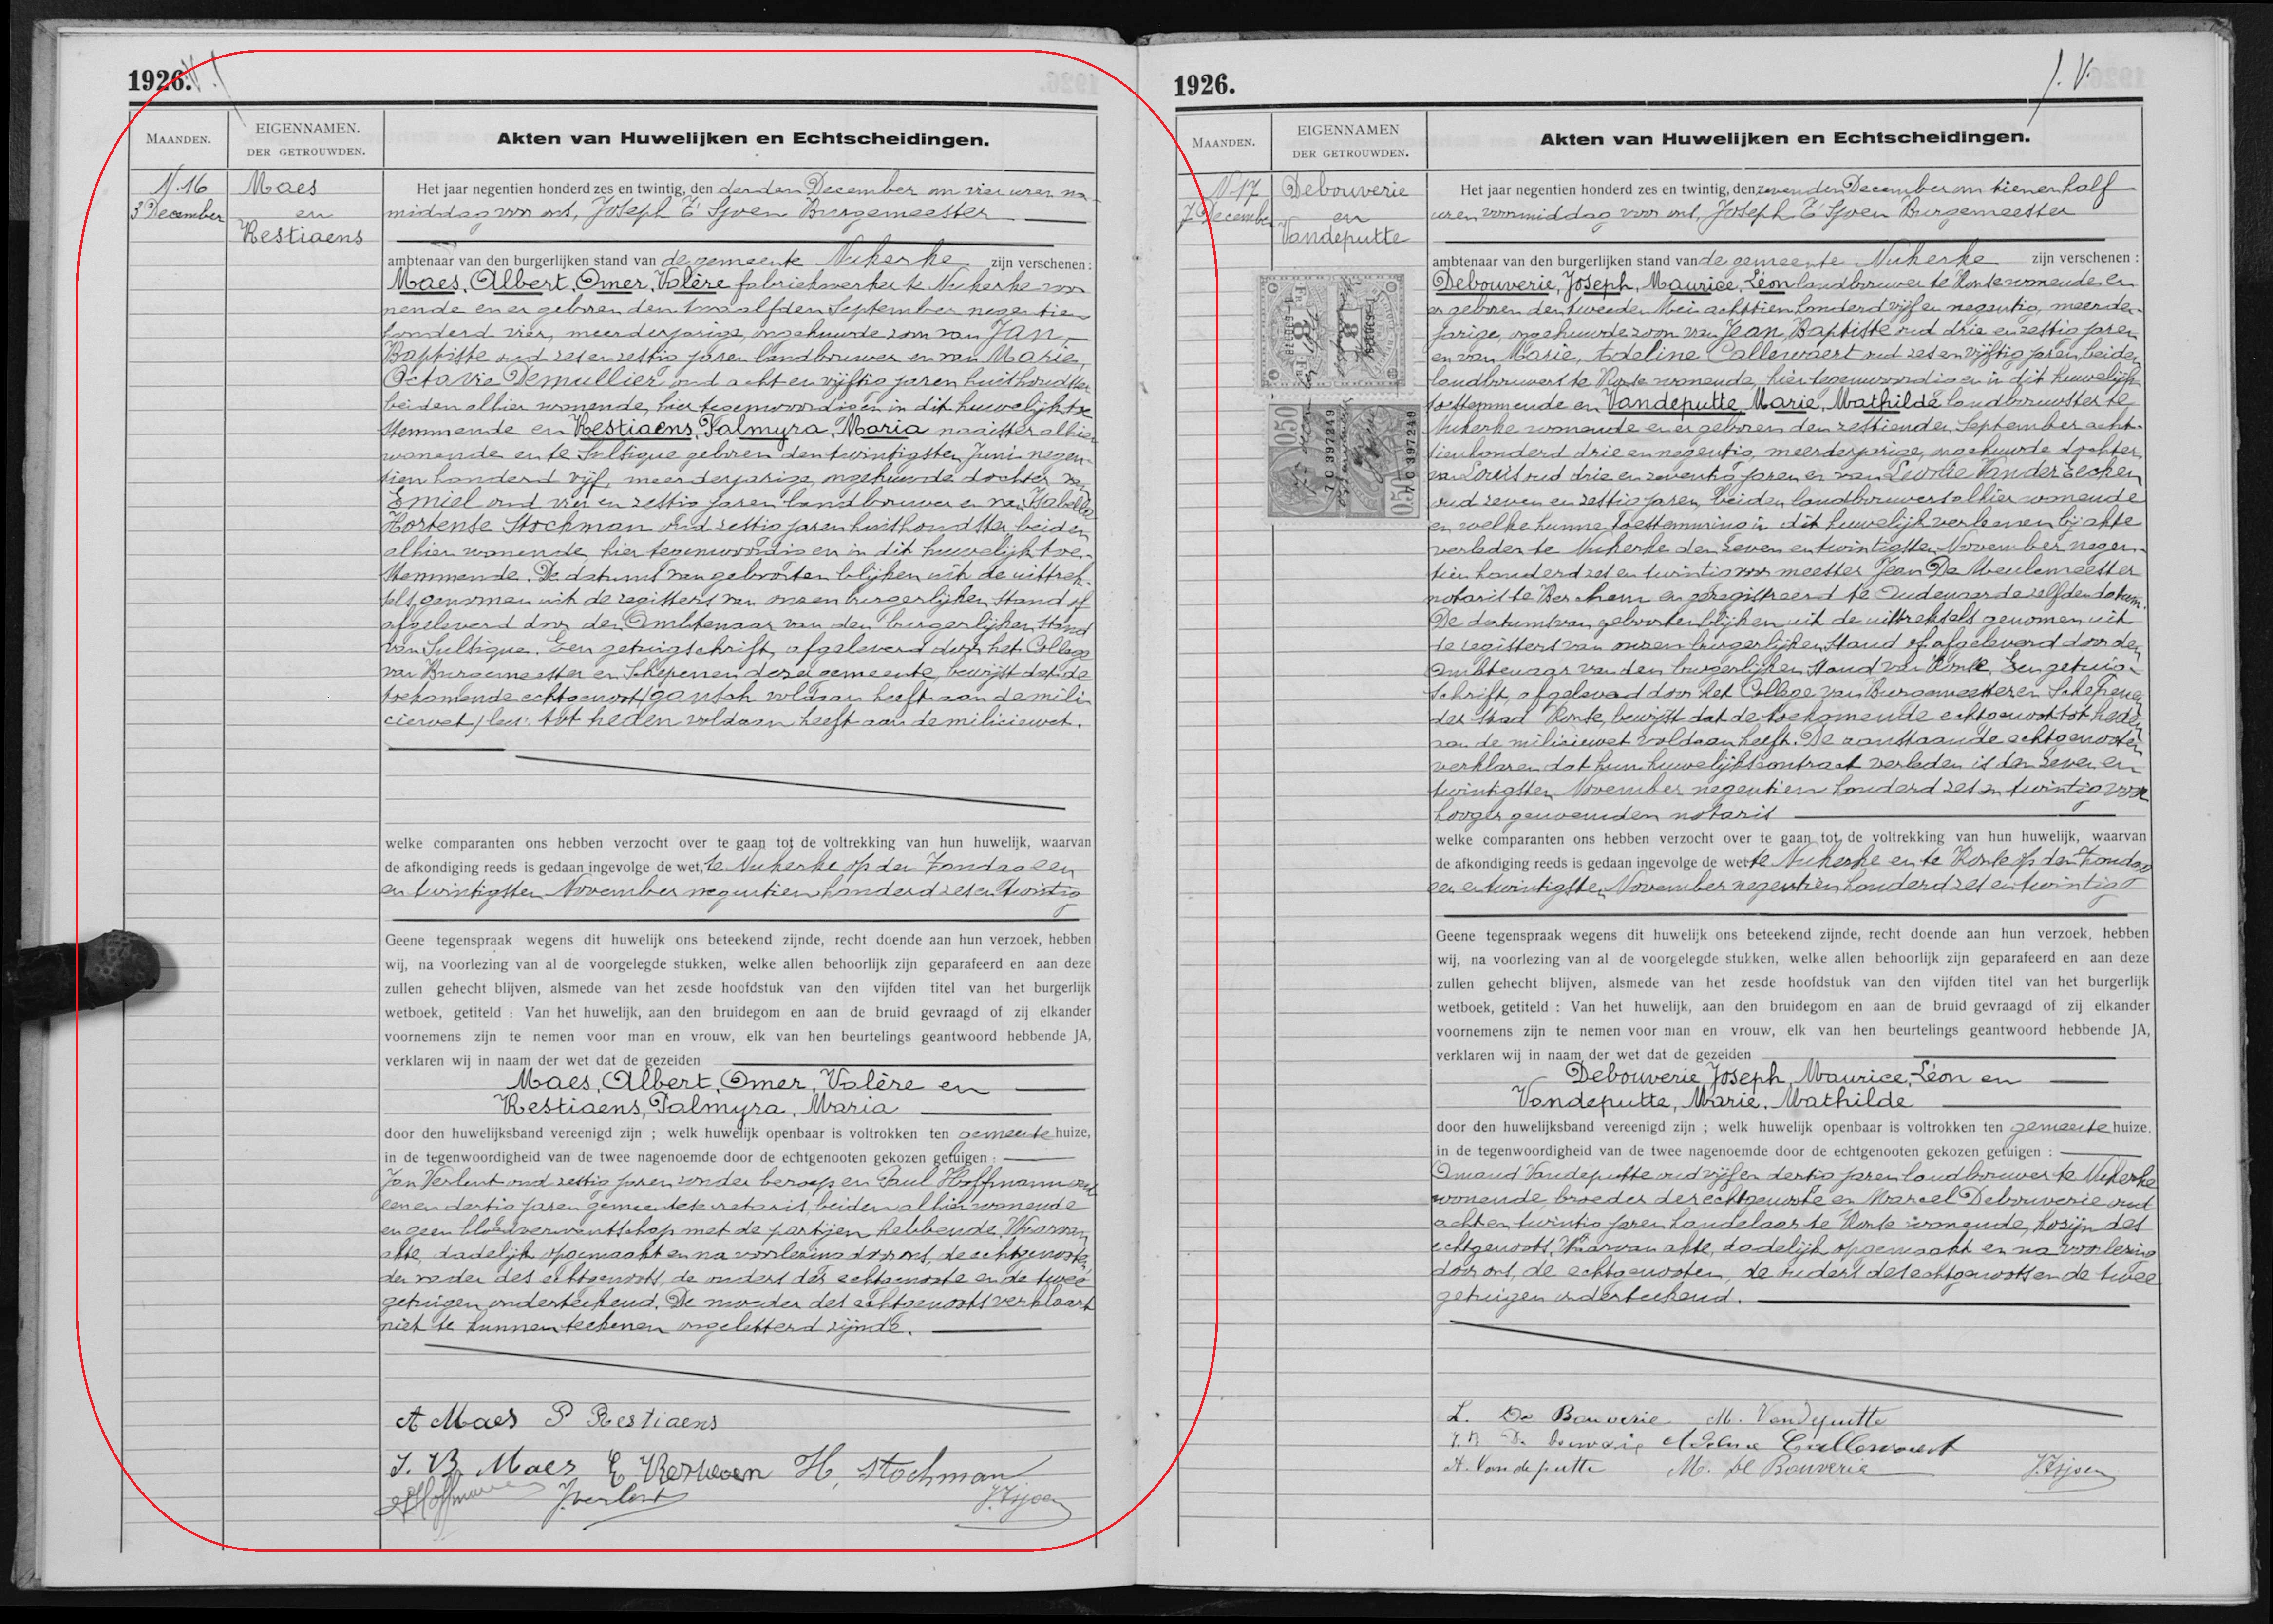 1926.
MAANDEN.
EIGENNAMEN.
DER GETROUWDEN.
Akten van Huwelijken en Echtscheidingen.
N. 16
3 December
Maes
en
Restiaens
Het jaar negentien honderd zes en twintig, den derden December om vier uren na-
middag voor ons, Joseph T'Sjoen Burgemeester
ambtenaar van den burgerlijken stand van de gemeente Nukerke zijn verschenen :
Maes, Albert, Omer, Valère fabriekwerker te Nukerke wo-
nende en er geboren den twaalfden September negentien
honderd vier, meerderjarige, ongehuwde zoon van Jan,
Baptiste oud zes en zestig jaren landbouwer en van Marie,
Octavie Demullier oud acht en vijftig jaren huishoudster
beiden alhier wonende, hier tegenwoordig en in dit huwelijk toe-
stemmende en Restiaens, Palmyra, Maria naaister alhier
wonende en te Sulsique geboren den twintigsten Juni negen-
tien honderd vijf, meerderjarige, ongehuwde dochter van
Emiel oud vier en zestig jaren landbouwer en van Isabelle
Hortense Stockman oud zestig jaren huishoudster beiden
alhier wonende, hier tegenwoordig en in dit huwelijk toe-
stemmende. De datums van geboorten blijken uit de uittrek-
sels, genomen uit de registers van onzen burgerlijken stand of
afgeleverd door den Ambtenaar van den burgerlijken stand
van Sulsique. Een getuigschrift, afgeleverd door het College
van Burgemeester en Schepenen dezer gemeente, bewijst dat de
toekomende echtgenoot (gansch voldaan heeft aan de mili-
ciewet) lees: tot heden voldaan heeft aan de miliciewet.
welke comparanten ons hebben verzocht over te gaan tot de voltrekking van hun huwelijk, waarvan
de afkondiging reeds is gedaan ingevolge de wet, te Nukerke op den Zondag een
en twintigsten November negentien honderd zes en twintig
Geene tegenspraak wegens dit huwelijk ons beteekend zijnde, recht doende aan hun verzoek, hebben
wij, na voorlezing van al de voorgelegde stukken, welke allen behoorlijk zijn geparafeerd en aan deze
zullen gehecht blijven, alsmede van het zesde hoofdstuk van den vijfden titel van het burgerlijk
wetboek, getiteld : Van het huwelijk, aan den bruidegom en aan de bruid gevraagd of zij elkander
voornemens zijn te nemen voor man en vrouw, elk van hen beurtelings geantwoord hebbende JA,
verklaren wij in naam der wet dat de gezeiden
Maes, Albert, Omer, Valère en
Restiaens, Palmyra, Maria
door den huwelijksband vereenigd zijn ; welk huwelijk openbaar is voltrokken ten gemeentehuize,
in de tegenwoordigheid van de twee nagenoemde door de echtgenooten gekozen getuigen :
Jan Verlent oud zestig jaren zonder beroep en Paul Hoffmann oud
een en dertig jaren gemeentesecretaris, beiden alhier wonende
en geen bloedverwantschap met de partijen hebbende. Waarvan
akte, dadelijk opgemaakt en na voorlezing door ons, de echtgenooten,
den vader des echtgenoots, de ouders der echtgenoote en de twee
getuigen onderteekend. De moeder des echtgenoots verklaart
niet te kunnen teekenen ongeletterd zijnde.
A Maes P Restiaens
J. B. Maes E Restiaen H, Stockman
Hoffmann J.verlent J.Tsjoen
1926.
J. V.
MAANDEN.
EIGENNAMEN
DER GETROUWDEN.
Akten van Huwelijken en Echtscheidingen.
N. 17
7 December
Debouverie
en
Vandeputte
7C 397249
7C 397249
050
050
Het jaar negentien honderd zes en twintig, den zevenden December om tien en half
uren voormiddag voor ons, Joseph T'Sjoen Burgemeester
ambtenaar van den burgerlijken stand van de gemeente Nukerke zijn verschenen :
Debouverie, Joseph, Maurice, Léon landbouwer te Ronse wonende en
er geboren den tweeden Mei achttien honderd vijf en negentig, meerder-
jarige, ongehuwde zoon van Jean, Baptiste oud drie en zestig jaren
en van Marie, Adeline Callewaert oud zes en vijftig jaren, beiden
landbouwers te Ronse wonende, hier tegenwoordig en in dit huwelijk
toestemmende en Vandeputte Marie, Mathilde landbouwster te
Nukerke wonende en er geboren den zestienden September acht-
tien honderd drie en negentig, meerderjarige, ongehuwde dochter
van Louis oud drie en zeventig jaren en van Leonie Vander Eecken
oud zeven en zestig jaren, beiden landbouwers alhier wonende
en welke hunne toestemming in dit huwelijk verleenen bij akte
verleden te Nukerke den zeven en twintigsten November negen-
tien honderd zes en twintig voor meester Jean De Meulemeester
notaris te Berchem en geregistreerd te Oudenaarde zelfden datum.
De datums van geboorten blijken uit de uittreksels genomen uit
de registers van onzen burgerlijken stand of afgeleverd door den
Ambtenaar van den burgerlijken stand van Ronse. Een getuig-
schrift, afgeleverd door het College van Burgemeester en Schepenen
der stad Ronse, bewijst dat de toekomende echtgenoot tot heden
aan de miliciewet voldaan heeft. De aanstaande echtgenooten
verklaren dat hun huwelijkscontract verleden is den zeven en
twintigsten November negentien honderd zes en twintig voor
hooger genoemden notaris
welke comparanten ons hebben verzocht over te gaan tot de voltrekking van hun huwelijk, waarvan
de afkondiging reeds is gedaan ingevolge de wet te Nukerke en te Ronse op den Zondag
een en twintigsten November negentien honderd zes en twintig
Geene tegenspraak wegens dit huwelijk ons beteekend zijnde, recht doende aan hun verzoek, hebben
wij, na voorlezing van al de voorgelegde stukken, welke allen behoorlijk zijn geparafeerd en aan deze
zullen gehecht blijven, alsmede van het zesde hoofdstuk van den vijfden titel van het burgerlijk
wetboek, getiteld : Van het huwelijk, aan den bruidegom en aan de bruid gevraagd of zij elkander
voornemens zijn te nemen voor man en vrouw, elk van hen beurtelings geantwoord hebbende JA,
verklaren wij in naam der wet dat de gezeiden
Debouverie, Joseph, Maurice, Léon en
Vandeputte, Marie, Mathilde
door den huwelijksband vereenigd zijn ; welk huwelijk openbaar is voltrokken ten gemeentehuize.
in de tegenwoordigheid van de twee nagenoemde door de echtgenooten gekozen getuigen :
Omaud Vandeputte oud vijf en dertig jaren landbouwer te Nukerke
wonende, broeder der echtgenoote en Marcel Debouverie oud
acht en twintig jaren handelaar te Ronse wonende, kozijn des
echtgenoots, Waarvan akte, dadelijk opgemaakt en na voorlezing
door ons, de echtgenooten, de ouders des echtgenoots en de twee
getuigen onderteekend.
L. De Bouverie M. Vandeputte
J. B De bouverie Adeline Callewaert
A. Vandeputte M. De Bouverie J.Tsjoen